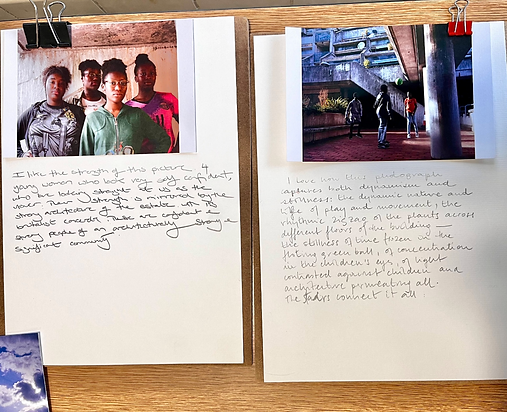 I like the strength of this picture 4
young women who look very self confident,
who are looking straight at us as the
viewer. Their strength is mirrored by the
strong architecture of the estate with its
brutalist concrete. These are confident &
strong people of an architecturally strong &
significant community
I love how this photograph
captures both dynamism and
stillness: the dynamic nature and
life of play and movement, the
rhythmic zigzag of the plants across
different floors of the building —
the stillness of time frozen in the
floating green ball, of concentration
in the children's eye, of light
contrasted against children and
architecture permeating all.
The connect it all.